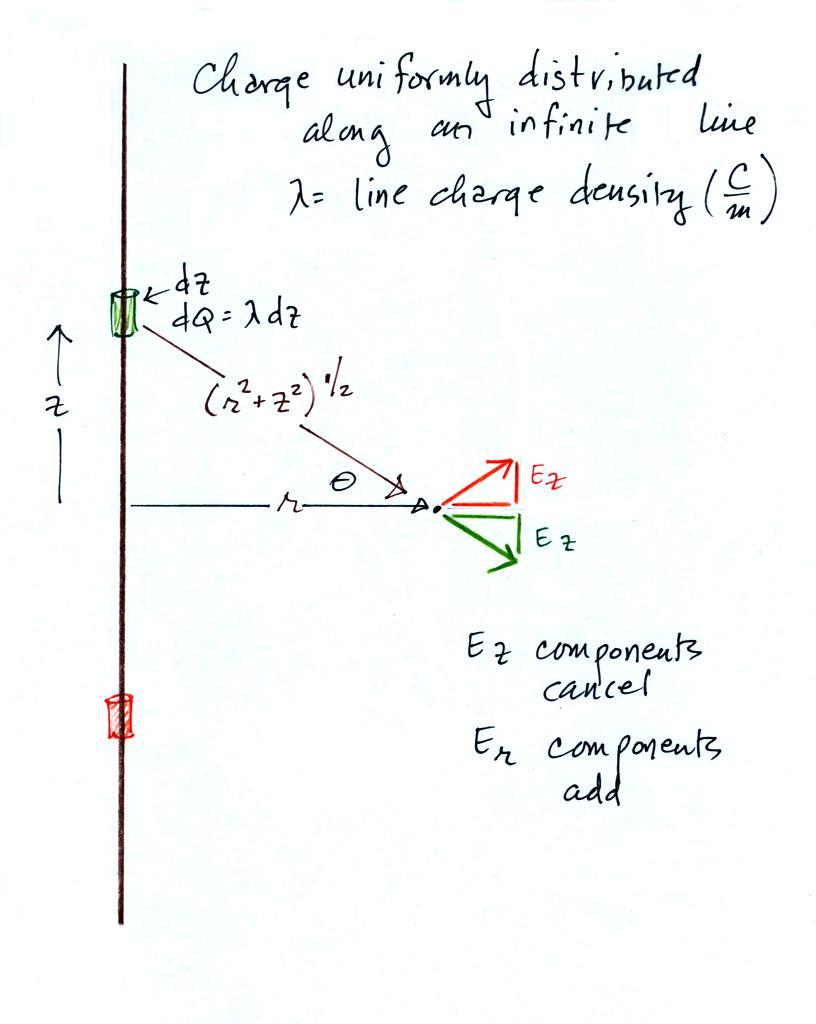 Charge uniformly distributed
along an infinite line
λ = line charge density (C/m)
dz
dQ = λ dz
z
(r²+z²)^1/2
θ
r
Ez
Ez
Ez components
cancel
Er components
add